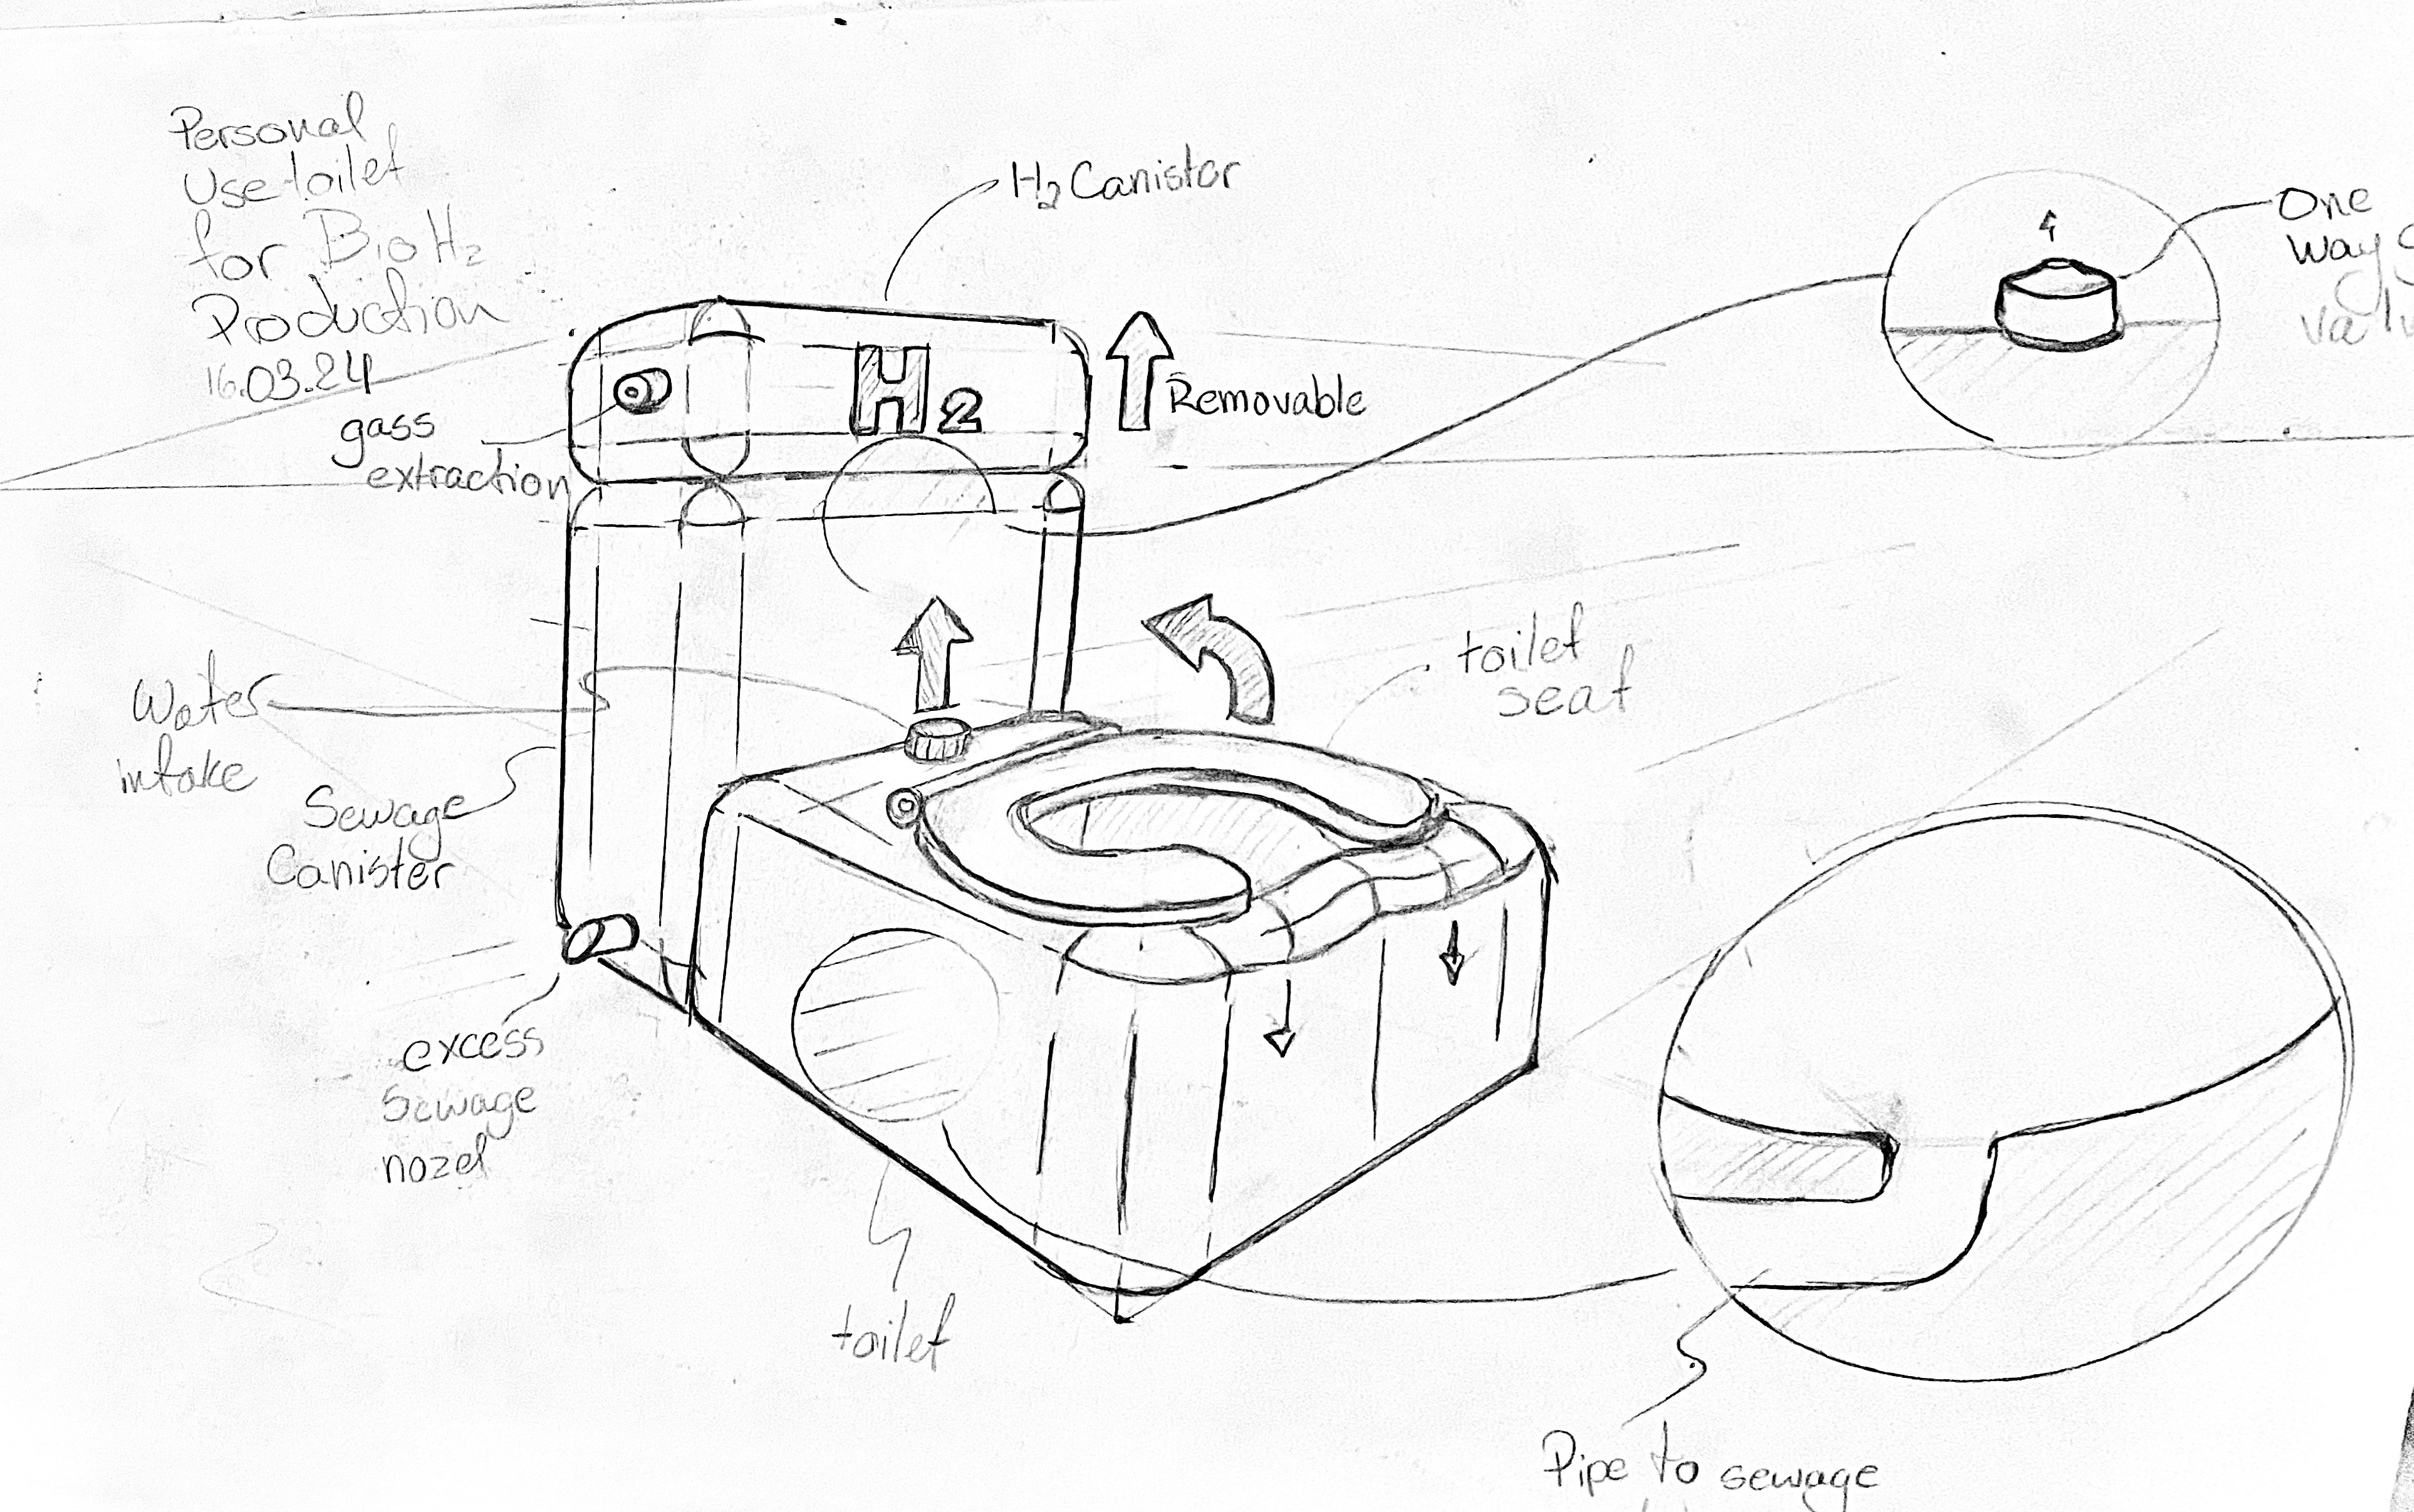 Personal
Use toilet
for BioH₂
Production
16.03.24
H₂ Canistor
One
way
H₂
Removable
gass
extraction
toilet
seat
Water
intake
Sewage
Canister
excess
Sewage
nozel
toilet
Pipe to sewage